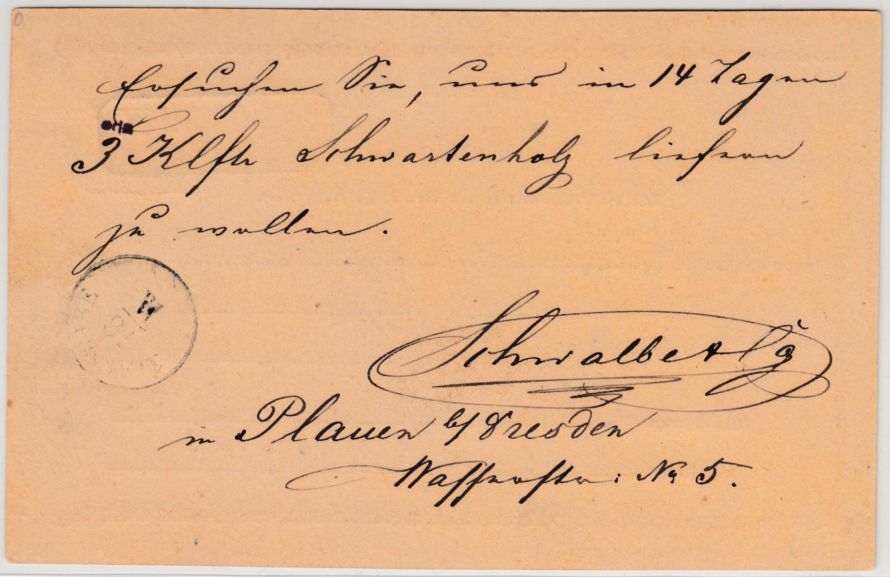 Ersuchen Sie, uns in 14 Tagen
3 Klftr Schwartenholz liefern
zu wollen.
Schwalbe & Co
in Plauen b/ Dresden
Wasserstr: No 5.